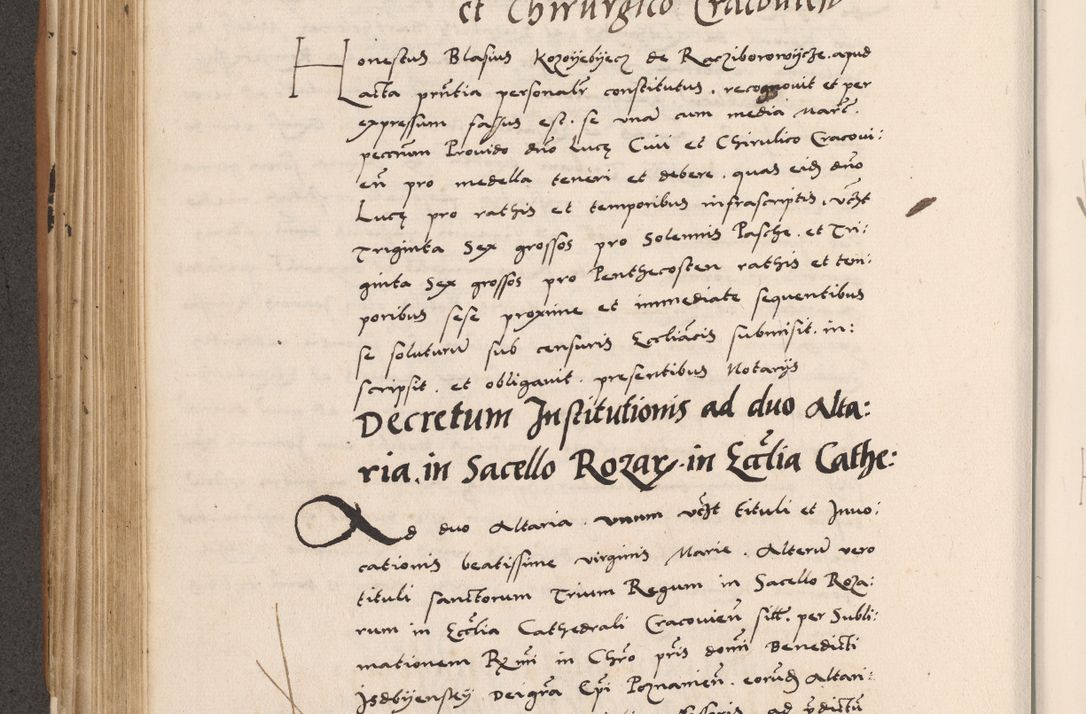 et Chirurgico Cracovien̄
Honestus Blasius Kozoijebijecz de Racziborowijcze. apud
acta prn̄tia personalr̄ constitutus, recognovit et per
expressum fassus est. se una cum media Marc̄.
peccun̄ Provido dn̄o Lucę Civi et Chirulico Cracovi:
en̄ pro medella teneri et debere. quas eid dn̄o
Lucę pro rathis et temporibus infrascriptis, vc̄zt
Triginta Sex grossos pro Solennis Pasche. et Tri:
ginta Sex grossos pro Penthecosten rathis et tem:
poribus sese proxime et immediate sequentibus
se soluturū sub censuris Eccliācis submisit. in:
scripsit. et obligavit. presentibus Notarijs
Decretum Institutionis ad duo Alta:
ria. in Sacello Rozar. in Eccl̄ia Cathe:
Ad duo Altaria. unum vc̄zt tituli et Invo:
cationis beatissime virginis Marie. Alterū vero
tituli sanctorum Trium Regum in Sacello Roza:
rum in Eccl̄ia Cathedrali Cracovien̄ sitt̄. per Subli:
mationem Rx̄mi in Chr̄o pr̄is domī Benedicti
Jsdbijenskij Dei gr̄a Ep̄i Poznanien̄. eorund Altari:
ad p̄dictū